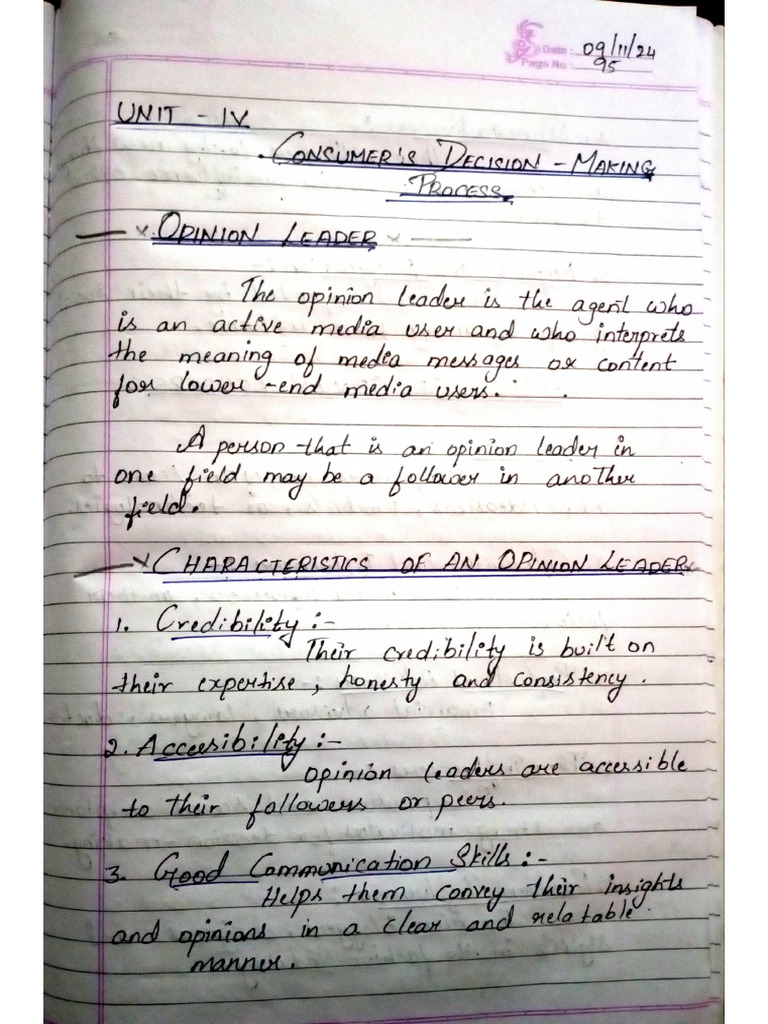 Date : 09/11/24
Page No : 95
UNIT - IV
CONSUMER'S DECISION - MAKING
PROCESS
OPINION LEADER
The opinion leader is the agent who
is an active media user and who interprets
the meaning of media messages or content
for lower-end media users.
A person that is an opinion leader in
one field may be a follower in another
field.
CHARACTERISTICS OF AN OPINION LEADER
1. Credibility :-
Their credibility is built on
their expertise, honesty and consistency.
2. Accesibility :-
Opinion leaders are accessible
to their followers or peers.
3. Good Communication Skills :-
Helps them convey their insights
and opinions in a clear and relatable
manner.